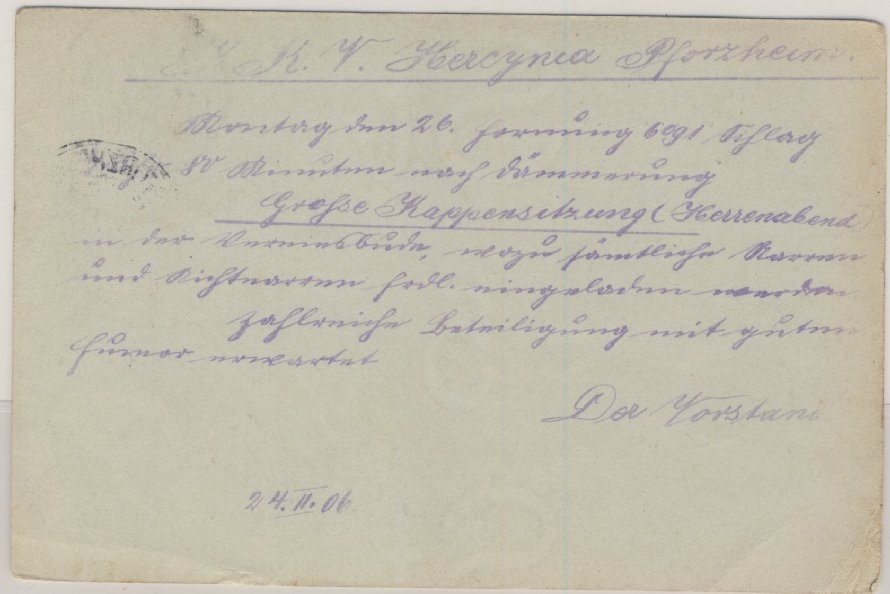 K. V. Hercynia Pforzheim.
Montag den 26. Hornung 6091 Schlag
80 Minuten nach Dämmerung
Große Kappensitzung (Herrenabend)
in der Vereinsbude, wozu sämtliche Narren
und Nichtnarren frdl. eingeladen werden
Zahlreiche Beteiligung mit guten
Humor erwartet
Der Vorstand
24. II. 06.